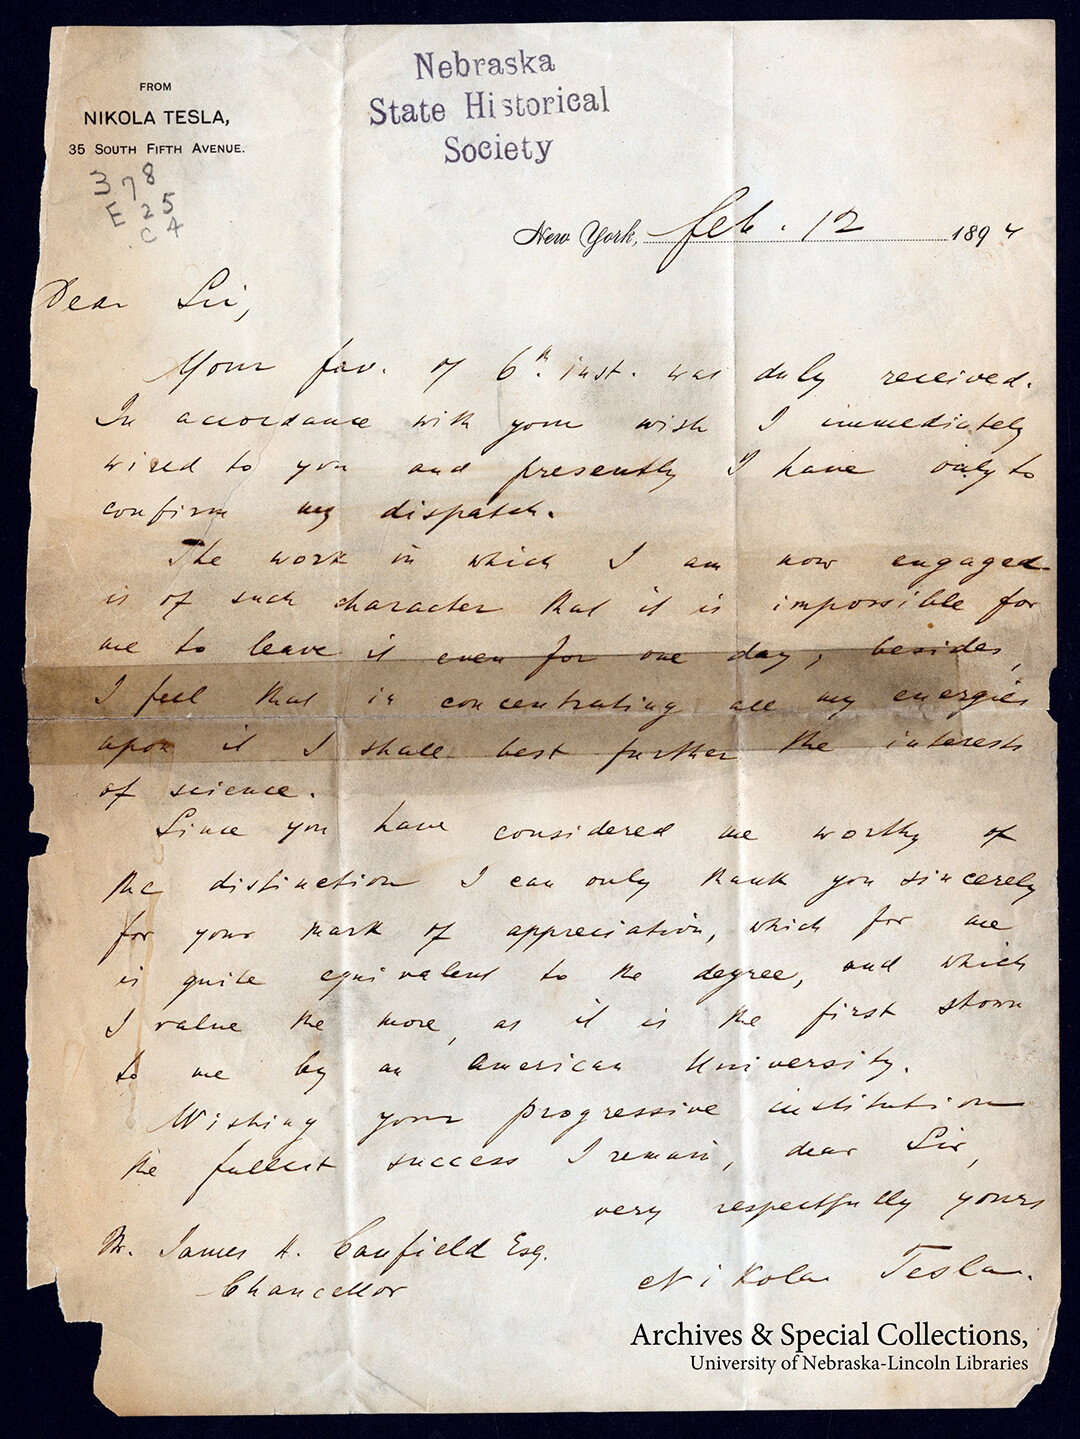 FROM
NIKOLA TESLA,
35 SOUTH FIFTH AVENUE.
Nebraska
State Historical
Society
378
E 25
C 4
New York, Feb. 12 1894
Dear Sir,
Your fav. of 6th. inst. was duly received.
In accordance with your wish I immediately
wired to you and presently I have only to
confirm my dispatch.
The work in which I am now engaged
is of such character that it is impossible for
me to leave it even for one day; besides,
I feel that in concentrating all my energies
upon it I shall best further the interests
of science.
Since you have considered me worthy of
the distinction I can only thank you sincerely
for your mark of appreciation, which for me
is quite equivalent to the degree, and which
I value the more, as it is the first shown
to me by an American University.
Wishing your progressive institution
the fullest success I remain, dear Sir,
very respectfully yours
Nikola Tesla.
Mr. James H. Canfield Esq.
Chancellor
Archives & Special Collections,
University of Nebraska-Lincoln Libraries